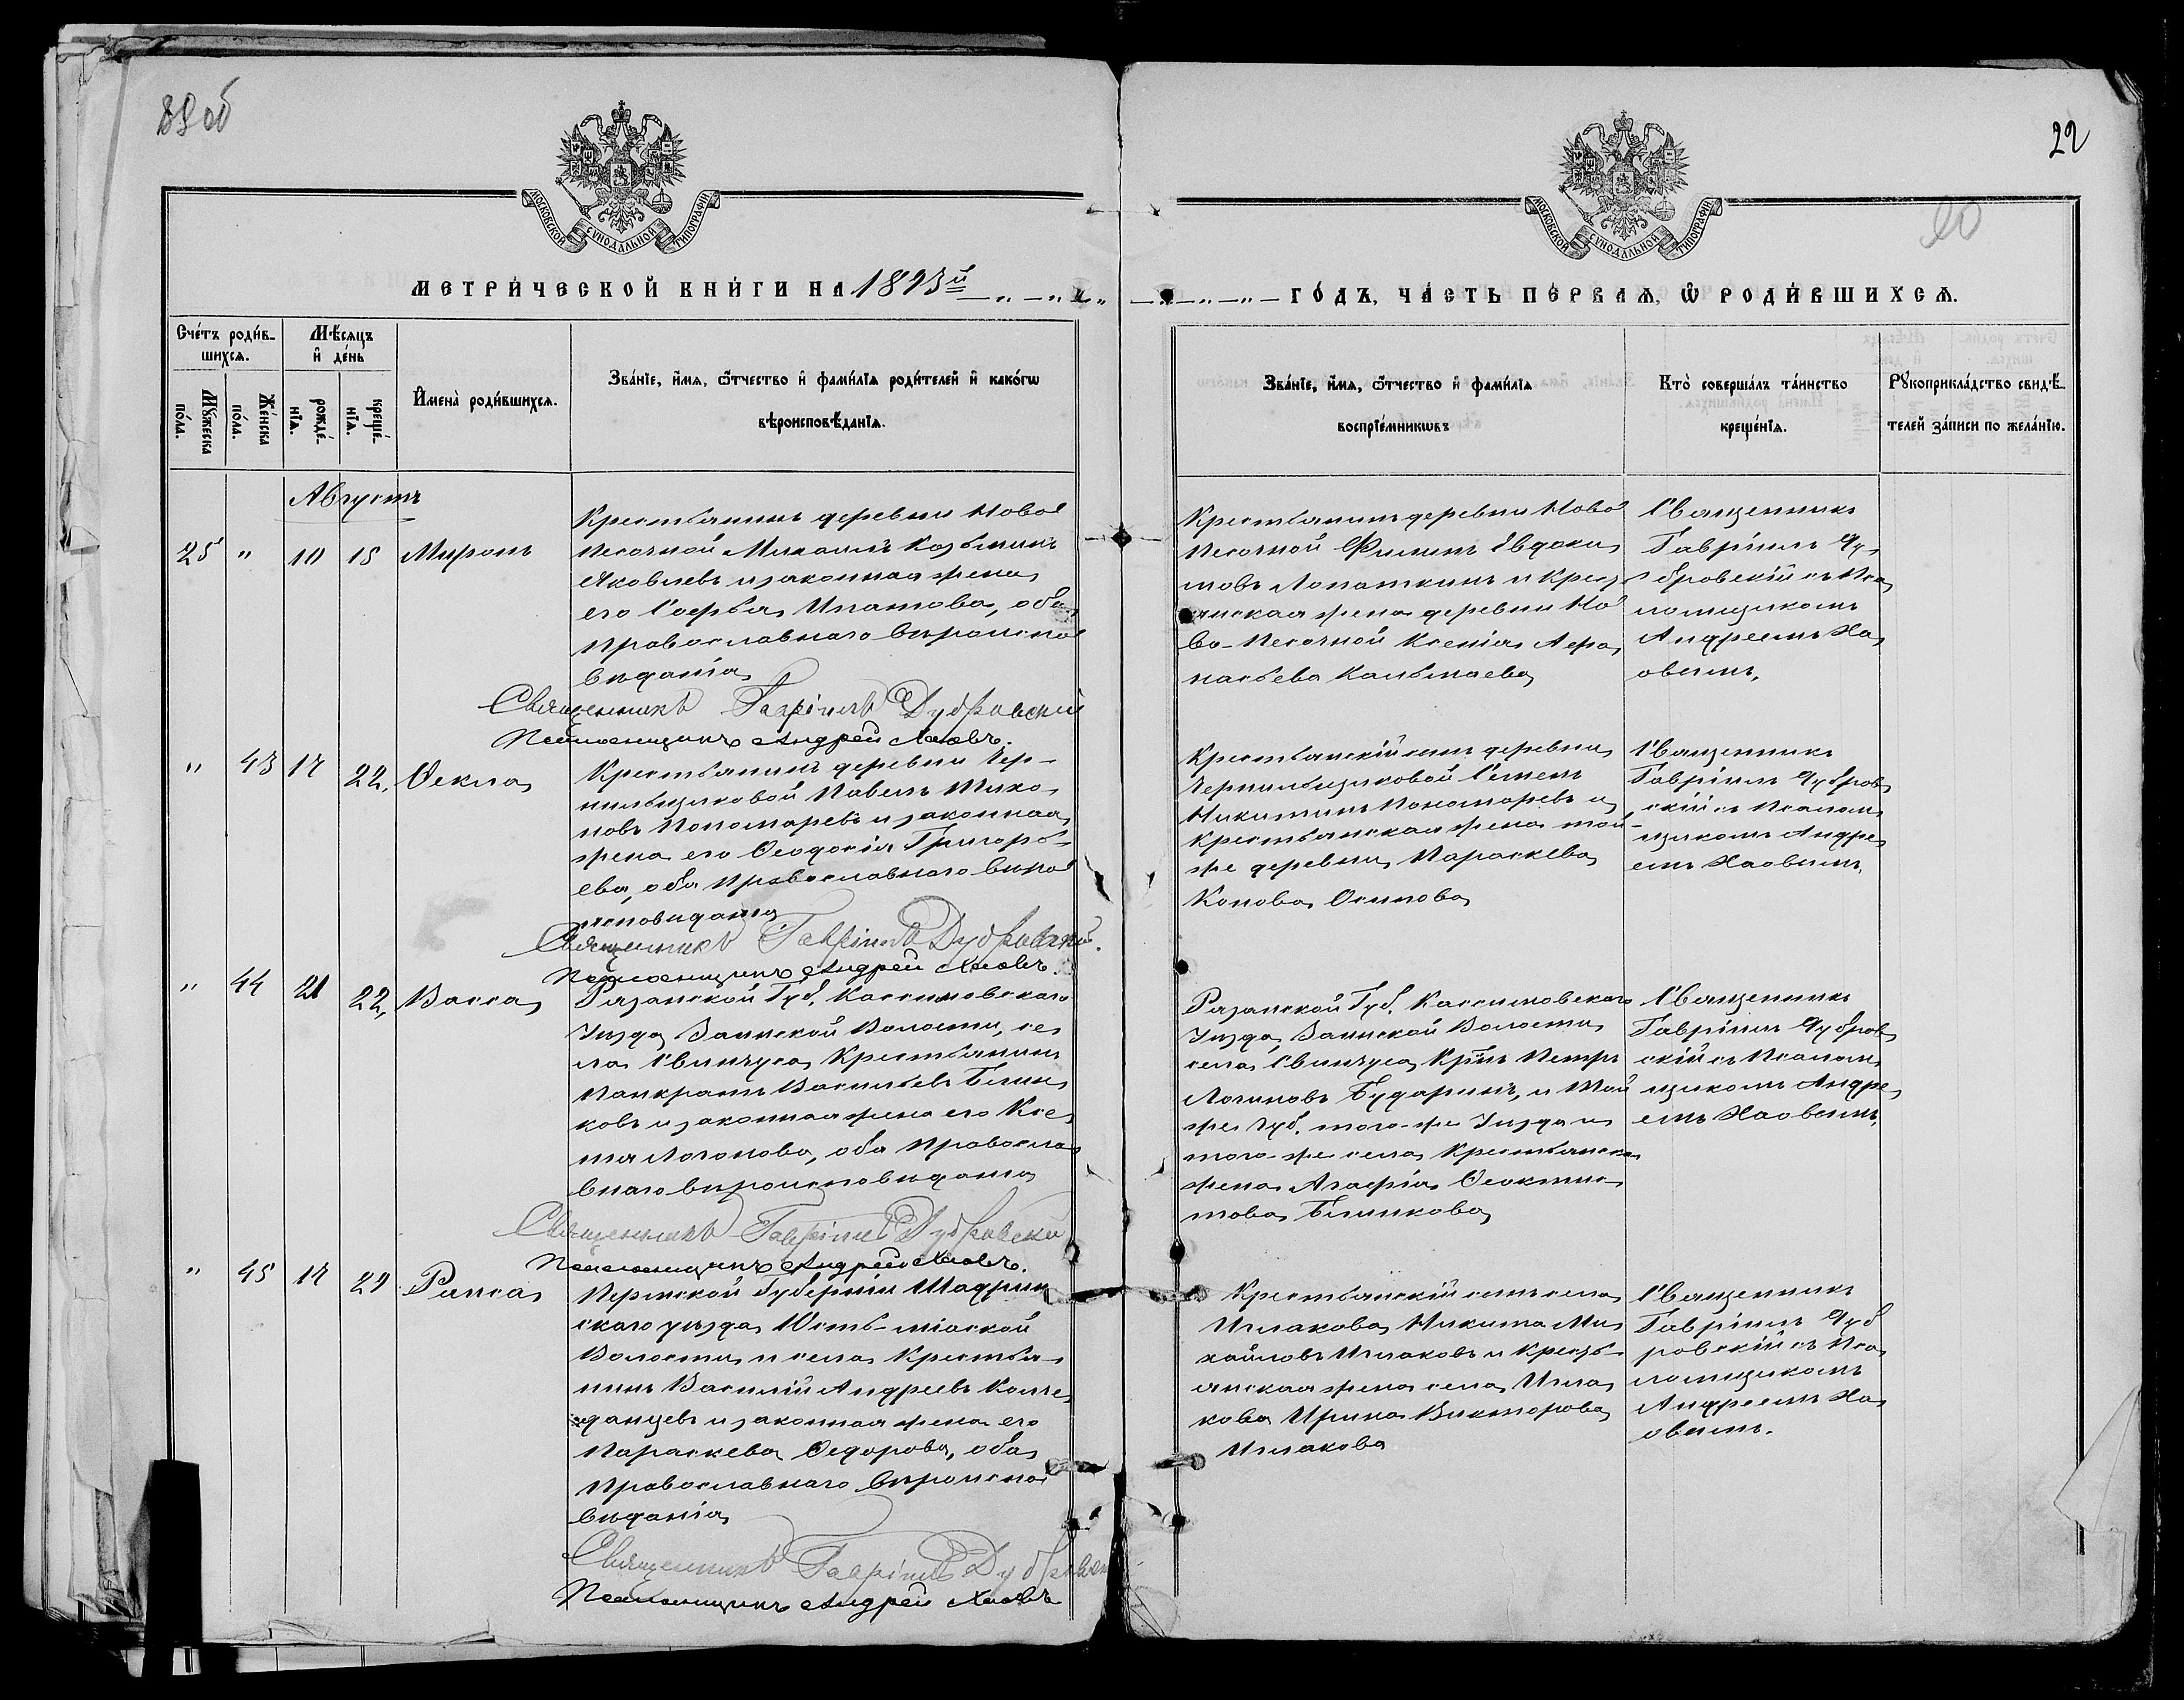 89 об
22
МОСКОВСКОЙ СѴНОДАЛЬНОЙ ТИПОГРАФІИ
МОСКОВСКОЙ СѴНОДАЛЬНОЙ ТИПОГРАФІИ
МЕТРИ́ЧЕСКОЙ КНИ́ГИ НА 1893й
ГО́ДЪ, ЧА́СТЬ ПЕ́РВАЯ, Ѡ РОДИ́ВШИХСЯ.
Сче́тъ роди́в-
шихся.
Му́жеска по́ла.
Же́нска по́ла.
Мѣсяцъ
и де́нь
рожде́-
нія.
креще́-
нія.
Имена̀ роди́вшихся.
Зва́ніе, и́мя, ѻ́тчество и фами́лія роди́телей и како́гѡ
вѣроисповѣ́данія.
Зва́ніе, и́мя, ѻ́тчество и фами́лія
воспріе́мникѡвъ
Кто̀ соверша́лъ та́инство
креще́нія.
Рꙋкоприкла́дство свидѣ́-
телей за́писи по жела́нію.
Августъ
25 " 10 15 Миронъ
Крестьянинъ деревни Ново
Песочной Михаилъ Козьминъ
Яковлевъ и законная жена
его Софья Ипатова, оба
православнаго вѣроиспо
вѣданія
Священникъ Гавріилъ Дубровскій
Псаломщикъ Андрей Хаовъ.
Крестьянинъ деревни Ново
Песочной Филипъ Евдоки
мовъ Лопаткинъ и Крестъ
янская жена деревни Но
во-Песочной Ксенія Афа
насьева Калтмаева
Священникъ
Гавріилъ Ду
бровскій съ Пса
ломщикомъ
Андреемъ Ха
овымъ.
" 43 17 22, Ѳекла
Крестьянинъ деревни Чер-
нильщиковой Павелъ Тихо
новъ Пономаревъ и законная
жена его Ѳеодосія Григорь-
ева, оба православнаго вѣро
исповѣданія
Священникъ Гавріилъ Дубровскій.
Псаломщикъ Андрей Хаовъ.
Крестьянскій сынъ деревни
Чернильщиковой Семенъ
Никитинъ Пономаревъ и
крестьянская жена той-
же деревни Параскева
Конова Осипова
Священникъ
Гавріилъ Дубров
скій съ Псалом
щикомъ Андре
емъ Хаовымъ.
" 44 21 22, Васса
Рязанской Губ. Кассимовскаго
Уѣзда, Волости, се
ла Свинчуса Крестьянинъ
Панкратъ Васильевъ Блин
ковъ и законная жена его Ксе
нія Логонова, оба Правосла
внаго вѣроисповѣданія
Священникъ Гавріилъ Дубровскій
Псаломщикъ Андрей Хаовъ.
Рязанской Губ. Кассимовскаго
Уѣзда, Волости
села Свинчуса, Крнъ Петръ
Логиновъ Бударинъ, и той
же Губ. того-же Уѣзда и
того-же села Крестьянска
жена Агафія Ѳеоктис
това Блинкова
Священникъ
Гавріилъ Дубров
скій съ Псалом
щикомъ Андре
емъ Хаовымъ.
" 45 17 22 Раиса
Пермской Губерніи Шадрин
скаго уѣзда Усть-міаской
Волости и села Крестья-
нинъ Василій Андреевъ Колче
данцевъ и законная жена его
Параскева Ѳедорова, оба
Православнаго вѣроиспо
вѣданія
Священникъ Гавріилъ Дубровск
Псаломщикъ Андрей Хаовъ
Крестьянскій сынъ села
Ишакова Никита Ми
хайловъ Ишаковъ и Кресть-
янская жена села Ишa
кова Ирина Викторова
Ишакова
Священникъ
Гавріилъ Дуб
ровскій съ Пса
ломщикомъ
Андреемъ Ха
овымъ.